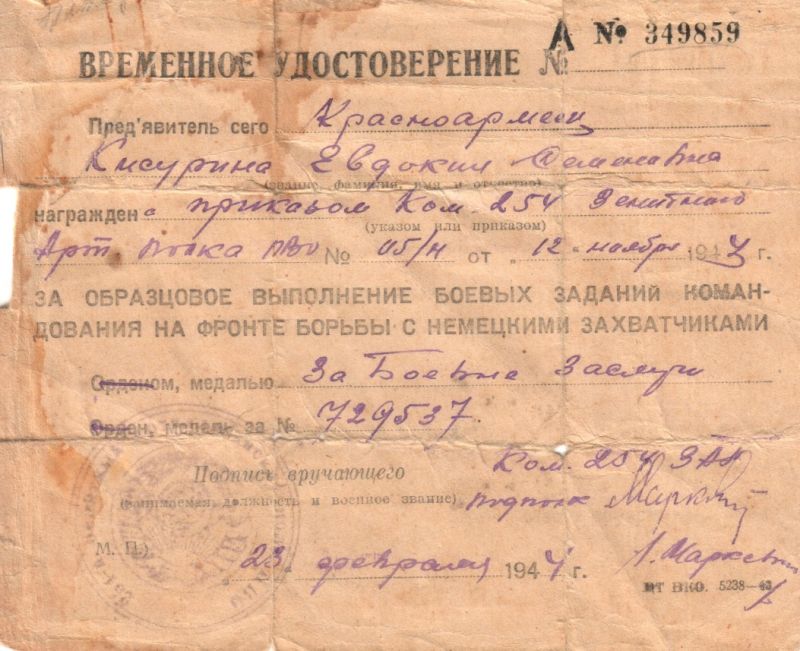 А № 349859
ВРЕМЕННОЕ УДОСТОВЕРЕНИЕ №
Пред'явитель сего Красноармеец
Кисурина Евдокия Семеновна
(звание, фамилия, имя и отчество)
награжден а приказом Ком. 254 Зенитного
(указом или приказом)
Арт полка ПВО № 05/Н от „ 12 " ноября 1944 г.
ЗА ОБРАЗЦОВОЕ ВЫПОЛНЕНИЕ БОЕВЫХ ЗАДАНИЙ КОМАН-
ДОВАНИЯ НА ФРОНТЕ БОРЬБЫ С НЕМЕЦКИМИ ЗАХВАТЧИКАМИ
Орденом, медалью За Боевые Заслуги
Орден, медаль за № 729537.
Подпись вручающего Ком. 254 ЗАП
(занимаемая должность и военное звание) подполк
М. П.)
„ 23 " февраля 1944 г.
ВТ ВКО. 5238—43